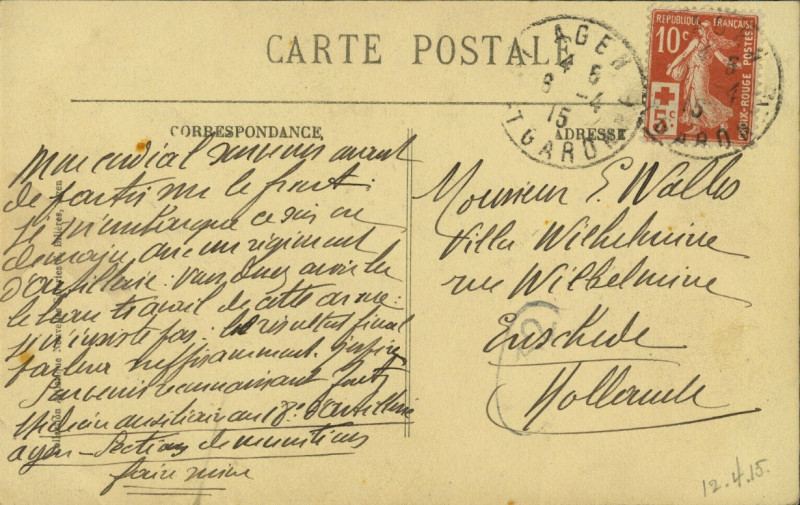 CARTE POSTALE
AGEN
4 6
8 -4
15
LT GARONNE
RÉPUBLIQUE FRANÇAISE
10c
POSTES
CROIX-ROUGE
5c
CORRESPONDANCE
ADRESSE
Mon cordial souvenir avant
de partir sur le front:
Je m'embarque ce soir ou
demain avec un régiment
d'artillerie. Vous devez avoir lu
le beau travail de cette arme:
Je n'insiste pas: le résultat final
parlera suffisamment.
Souvenir reconnaissant
Médecin auxiliaire au 18e d'artillerie
Agen - Sections de munitions
faire suivre
Monsieur E. Walko
Villa Wilhelmine
rue Wilhelmine
Enschede
Hollande
12.4.15.